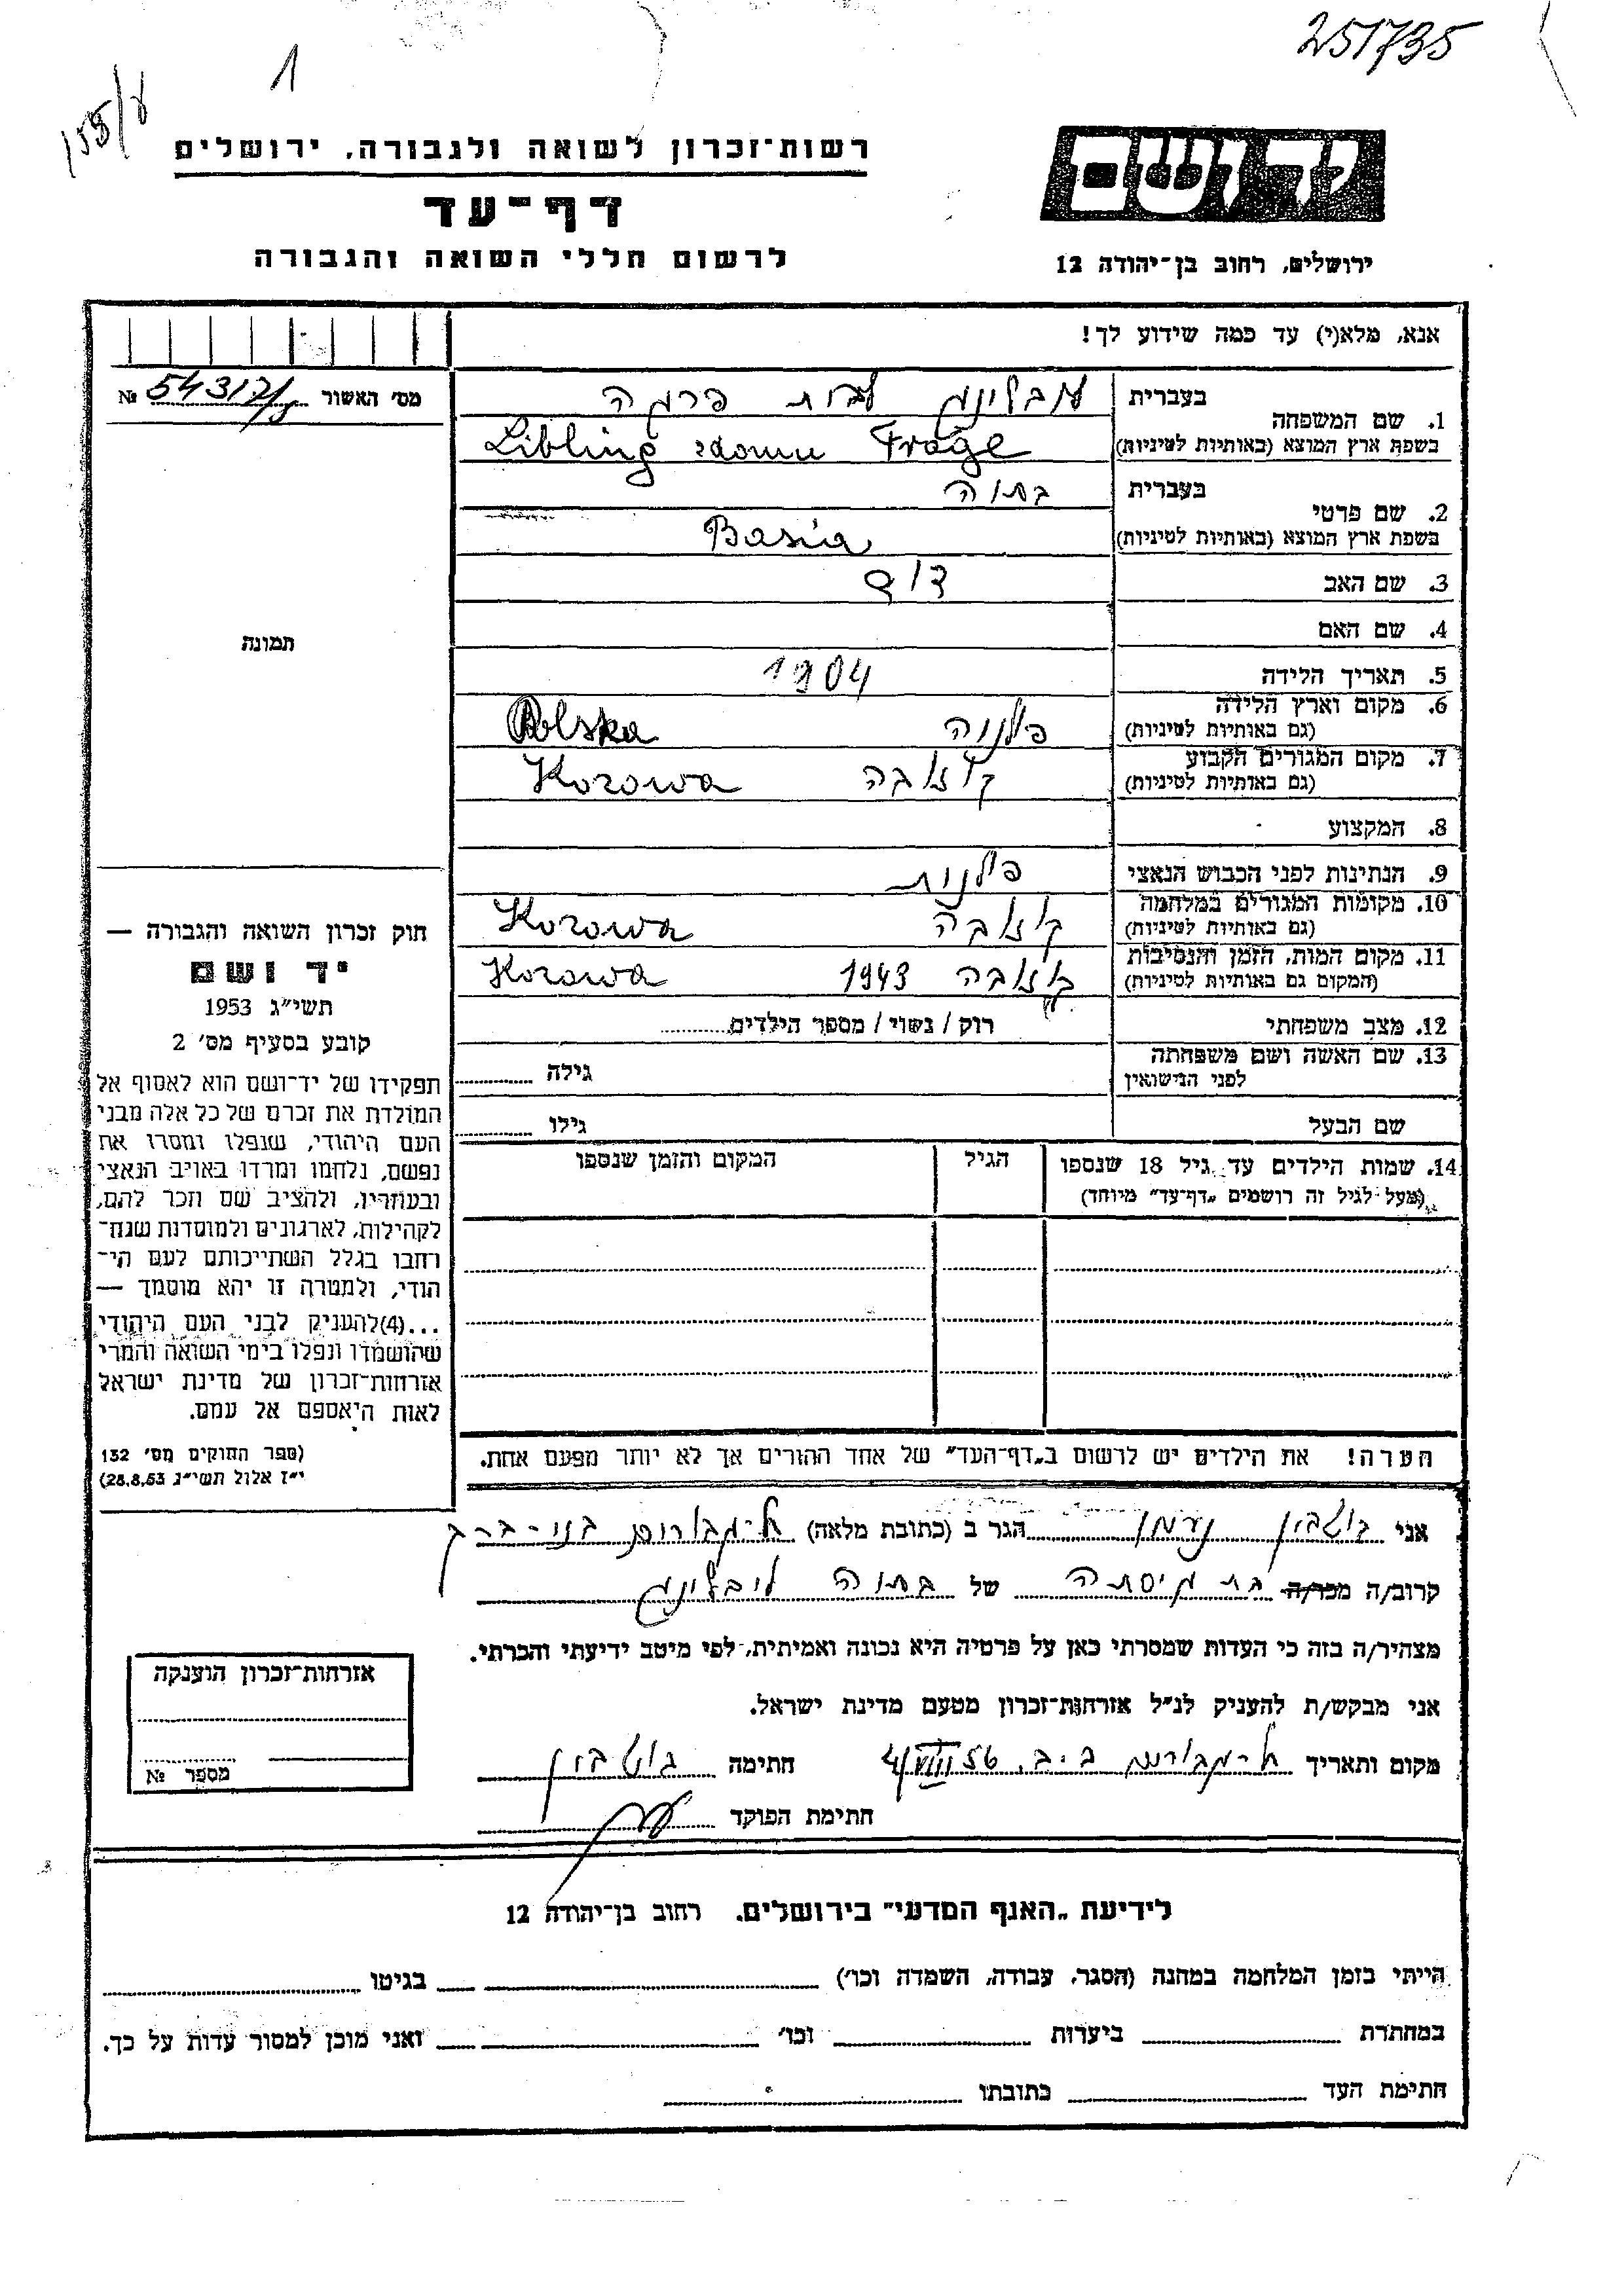 251735
1
158/ע
רשות־זכרון לשואה ולגבורה, ירושלים
ידושם
דף־עד
לרשום חללי השואה והגבורה
ירושלים, רחוב בן־יהודה 12
אנא, מלא(י) עד כמה שידוע לך!
מס׳ האשור № 54317/
1. שם המשפחה
בעברית ליבלינג לבית פרגה
בשפת ארץ המוצא (באותיות לטיניות) Libling zdomu Frage
2. שם פרטי
בעברית בסיה
בשפת ארץ המוצא (באותיות לטיניות) Basia
3. שם האב דוד
4. שם האם
תמונה
5. תאריך הלידה 1904
6. מקום וארץ הלידה
(גם באותיות לטיניות) פולניה Polska
7. מקום המגורים הקבוע
(גם באותיות לטיניות) Kozowa
8. המקצוע
9. הנתינות לפני הכבוש הנאצי פולנית
10. מקומות המגורים במלחמה
(גם באותיות לטיניות) Kozowa
11. מקום המות, הזמן והנסיבות
(המקום גם באותיות לטיניות) 1943 Kozowa
12. מצב משפחתי רוק / נשוי / מספר הילדים
13. שם האשה ושם משפחתה
לפני הנישואין גילה
שם הבעל גילו
14. שמות הילדים עד גיל 18 שנספו
(מעל לגיל זה רושמים „דף־עד״ מיוחד)
הגיל
המקום והזמן שנספו
חוק זכרון השואה והגבורה —
יד ושם
תשי״ג 1953
קובע בסעיף מס׳ 2
תפקידו של יד־ושם הוא לאסוף אל
המולדת את זכרם של כל אלה מבני
העם היהודי, שנפלו ומסרו את
נפשם, נלחמו ומרדו באויב הנאצי
ובעוזריו, ולהציב שם וזכר להם,
לקהילות, לארגונים ולמוסדות שנח־
רחבו בגלל השתייכותם לעם הי־
הודי, ולמטרה זו יהא מוסמך —
...(4)להעניק לבני העם היהודי
שהושמדו ונפלו בימי השואה והמרי
אזרחות־זכרון של מדינת ישראל
לאות היאספם אל עמם.
(ספר החוקים מס׳ 132
י״ז אלול תשי״ג 28.8.53)
הערה! את הילדים יש לרשום ב„דף־העד״ של אחד ההורים אך לא יותר מפעם אחת.
אני גוטבוין נעמן הגר ב (כתובת מלאה) בני-ברק
קרוב/ה מכר/ה בת גיסתה של בסיה ליבלינג
מצהיר/ה בזה כי העדות שמסרתי כאן על פרטיה היא נכונה ואמיתית, לפי מיטב ידיעתי והכרתי.
אני מבקש/ת להעניק לנ״ל אזרחות־זכרון מטעם מדינת ישראל.
מקום ותאריך ב.ב. 4/VIII 56 חתימה גוטבוין
חתימת הפוקד
אזרחות־זכרון הוענקה
מספר №
לידיעת „האגף המדעי״ בירושלים, רחוב בן־יהודה 12
הייתי בזמן המלחמה במחנה (הסגר, עבודה, השמדה וכו׳) בגיטו
במחתרת ביערות וכו׳ ואני מוכן למסור עדות על כך.
חתימת העד כתובתו